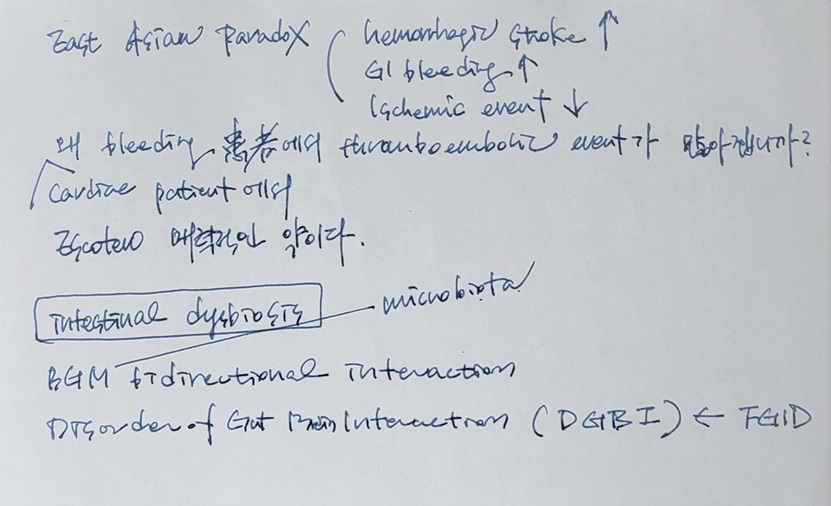 East Asian Paradox
hemorrhagic stroke ↑
GI bleeding ↑
Ischemic event ↓
왜 bleeding 患者에서 thromboembolic event가 많아집니까?
Cardiac patient에서
Escoten 매력적인 약이다.
intestinal dysbiosis
microbiota
BGM bidirectional interaction
Disorder of Gut Brain Interaction (DGBI) ← FGID